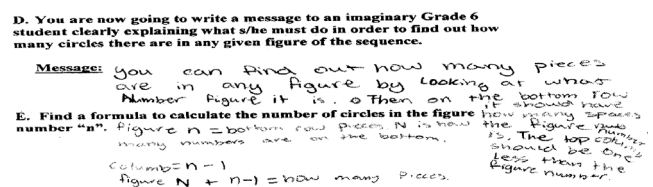 D. You are now going to write a message to an imaginary Grade 6
student clearly explaining what s/he must do in order to find out how
many circles there are in any given figure of the sequence.
Message: you can find out how many pieces
are in any figure by Looking at what
Number figure it is. Then on the bottom row
it should have
how many spaces
the figure number
is. The top column
should be one
Less than the
figure number.
E. Find a formula to calculate the number of circles in the figure
number "n". figure n = bottom row pieces N is how
many numbers are on the bottom.
Columb = n - 1
figure N + n-1) = how many Pieces.